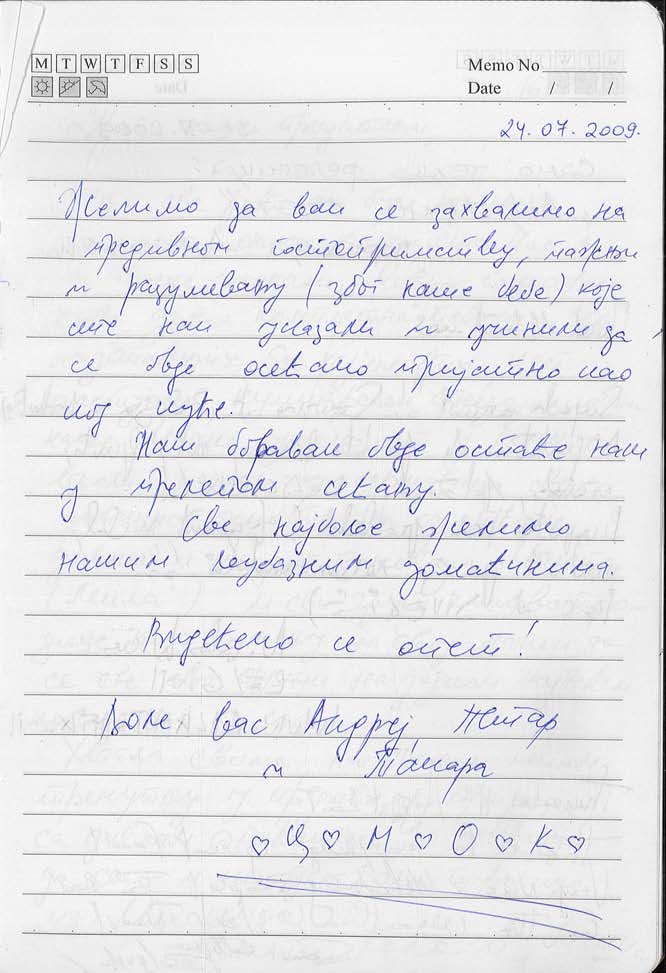 M T W T F S S
Memo No
Date / /
24.07.2009.
Желимо да вам се захвалимо на
предивном гостопримству, пажњи
и разумевању (због наше бебе) које
сте нам указали и учинили да
се овде осећамо пријатно као
код куће.
Наш боравак овде остаће нам
у прелепом сећању.
Све најбоље желимо
нашим љубазним домаћинима.
Видећемо се опет!
Воле вас Андреј, Петар
и Тамара
♡ Ц ♡ М ♡ О ♡ К ♡